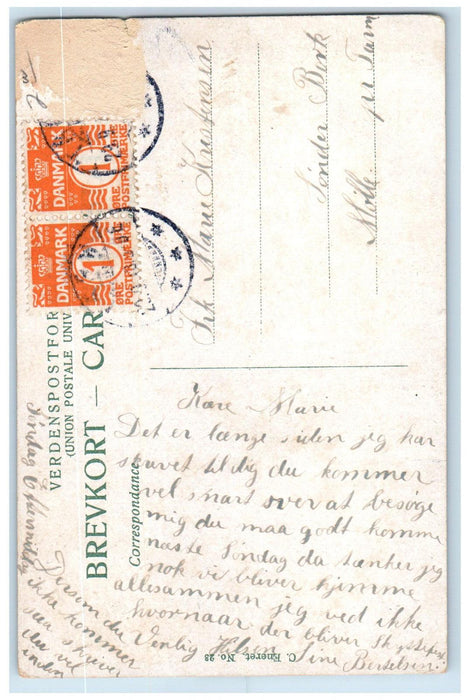 VERDENSPOSTFOR
(UNION POSTALE UNIV
BREVKORT — CAR
Correspondance
DANMARK
1
ØRE
POSTFRIMÆRKE
DANMARK
1
ØRE
POSTFRIMÆRKE
Frk Marie Kristensen
Sønder Bork
Mølle pr Tarm
Kære Marie
Det er længe siden jeg har
skrevet til dig du kommer
vel snart over at besøge
mig du maa godt komme
næste Søndag du tænker jeg
nok vi bliver hjemme
allesammen jeg ved ikke
hvornaar der bliver
Venlig Hilsen Sine Bertelsen
Dersom du
ikke kommer
saa skriver
du vel
inden
C. Eneret. No. 23